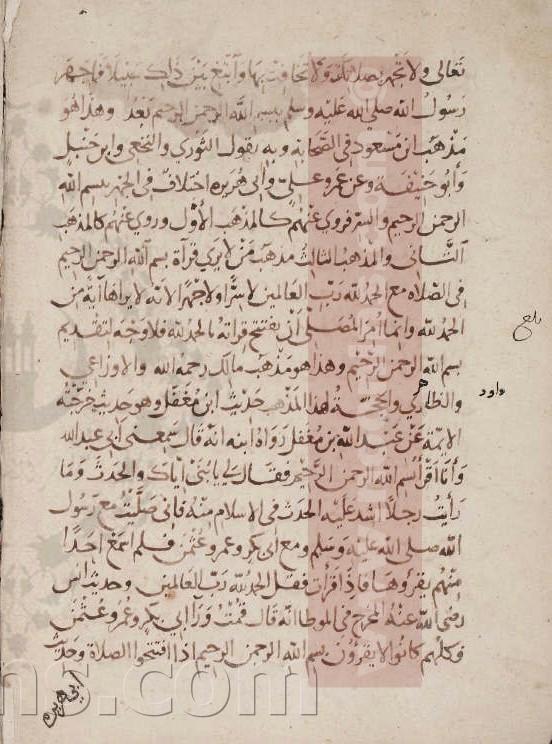 تعالى ولا تجهر بصلاتك ولا تخافت بها وابتغ بين ذلك سبيلا فاجهر
رسول الله صلى الله عليه وسلم ببسم الله الرحمن الرحيم بعد وهذا هو
مذهب ابن مسعود في الصحابة وبه يقول الثوري والنخعي وابن حنبل
وأبو حنيفة وعن عمر وعلي وأبي هريرة اختلاف في الجهر ببسم الله
الرحمن الرحيم والسر فروي عنهم كالمذهب الأول وروي عنهم كالمذهب
الثاني والمذهب الثالث مذهب من لا يرى قراة بسم الله الرحمن الرحيم
في الصلاة مع الحمد لله رب العالمين لا سرا ولا جهرا لانه لا يراها آية من
الحمد لله وانما امر المصلي أن يفتتح قراته بالحمد لله فلا وجه لتقديم
بسم الله الرحمن الرحيم وهذا هو مذهب مالك رحمه الله والاوزاعي
والظاهري والحجة لهذا المذهب حديث ابن مغفل وهو حديث خرجته
الايمة عن عبد الله بن مغفل رواه ابنه انه قال سمعني ابي عبد الله
وأنا اقرأ بسم الله الرحمن الرحيم فقال لي يا بني اياك والحدث وما
رأيت رجلا اشد عليه الحدث في الاسلام منه فاني صليت مع رسول
الله صلى الله عليه وسلم ومع ابي بكر وعمر وعثمن فلم اسمع احدا
منهم يقرؤها فاذا قرأت فقل الحمد لله رب العالمين وحديث انس
رضي الله عنه المخرج في الموطا انه قال قمت ورا ابي بكر وعمر وعثمن
وكلهم كانوا لا يقرؤون بسم الله الرحمن الرحيم اذا افتتحوا الصلاة وحديث
ابي هريرة
بلغ
داود
ns.com